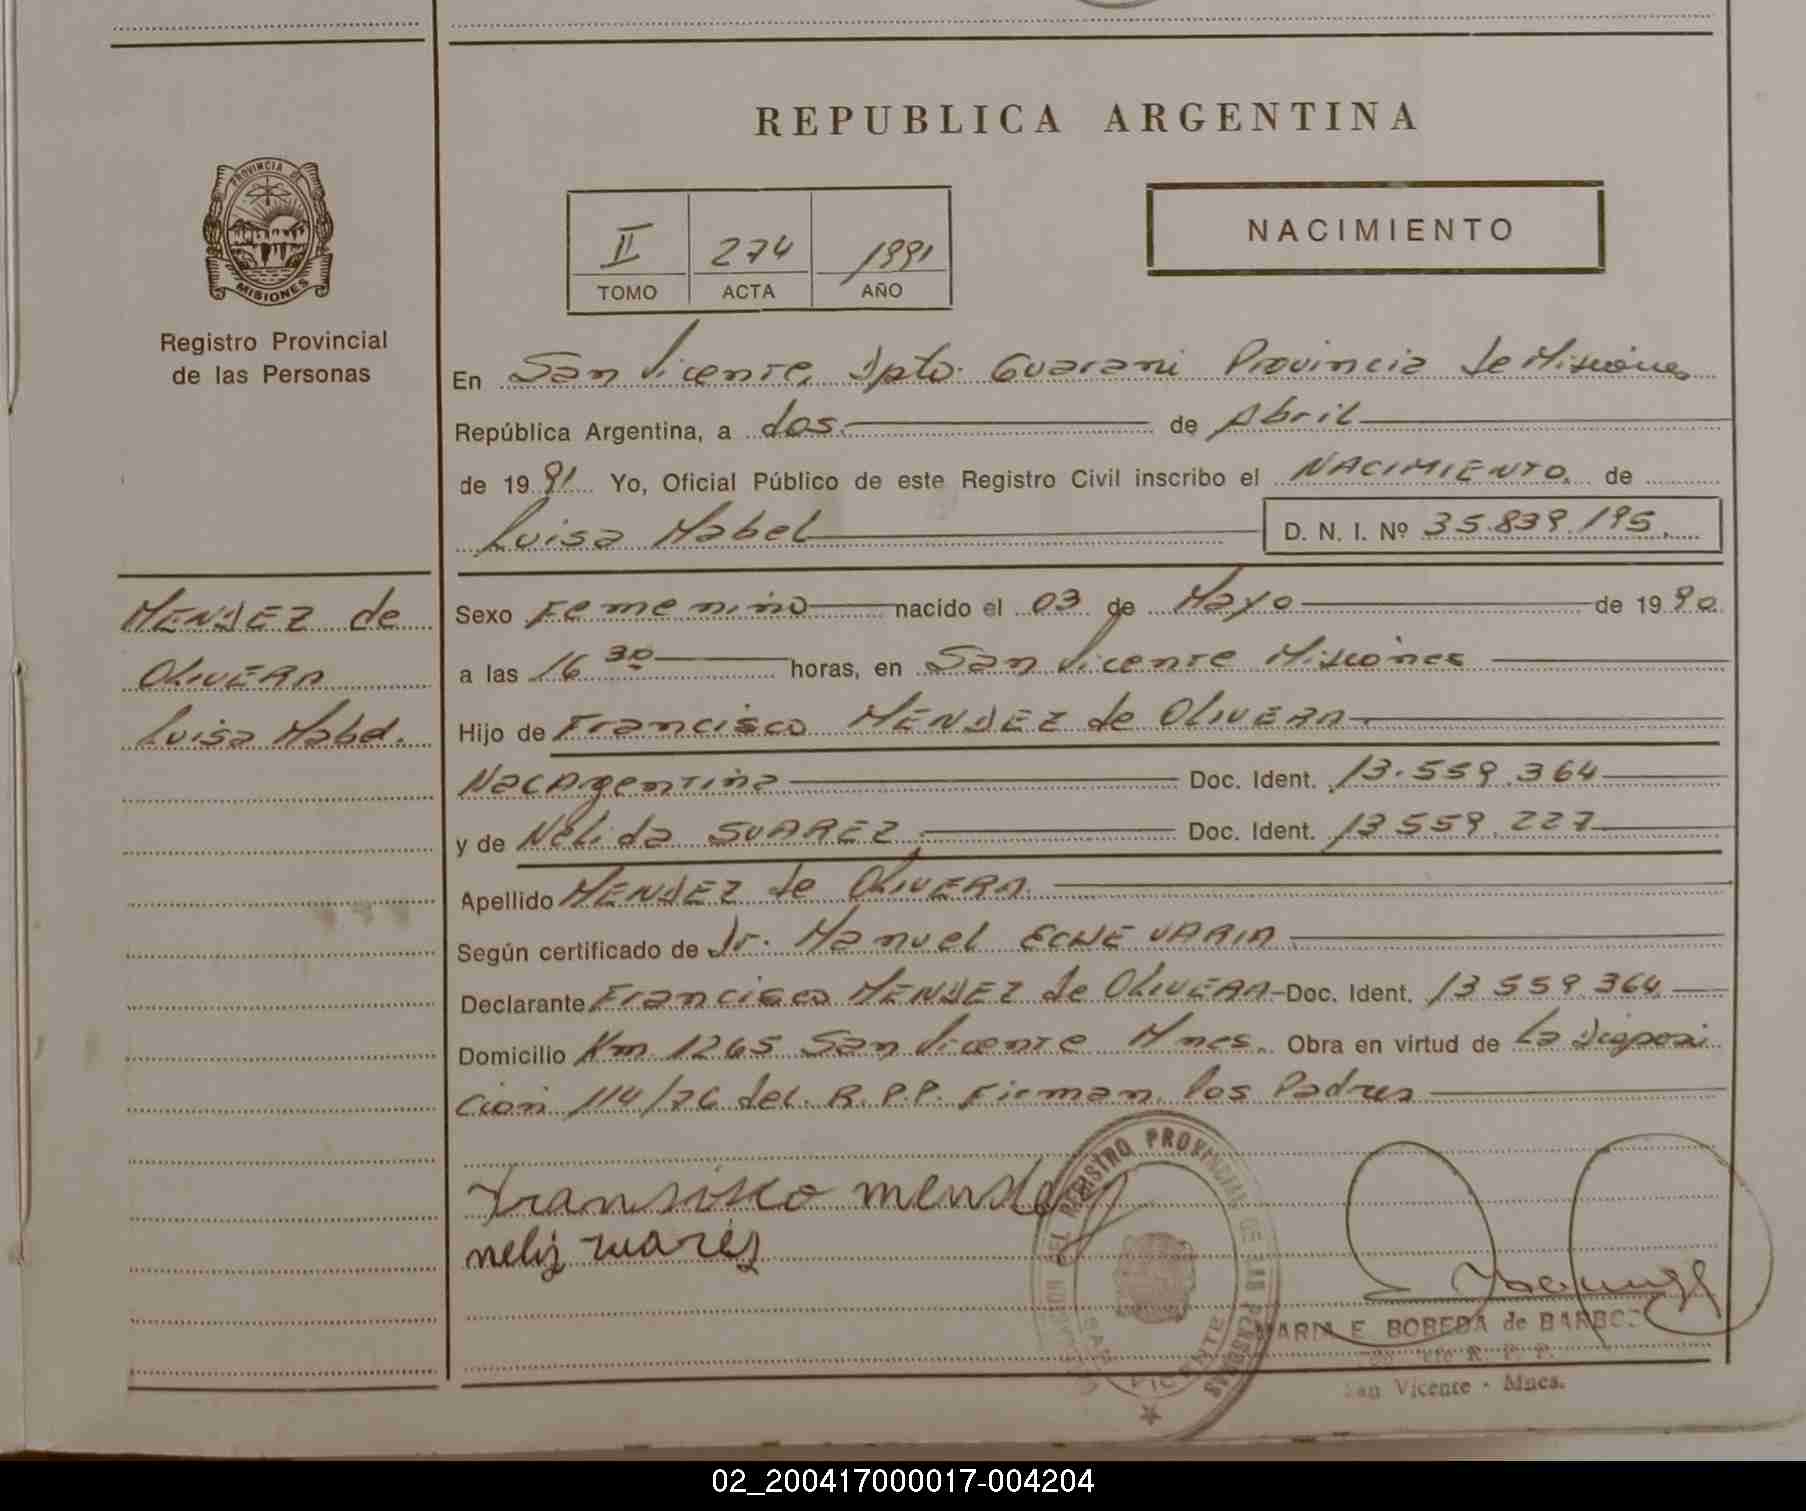 REPUBLICA ARGENTINA
PROVINCIA DE
MISIONES
Registro Provincial
de las Personas
II 274 1991
TOMO ACTA AÑO
NACIMIENTO
En San Vicente, Dpto. Guarani Provincia de Misiones
República Argentina, a dos. de Abril
de 1991 Yo, Oficial Público de este Registro Civil inscribo el NACIMIENTO. de
Luisa Mabel D. N. I. Nº 35.839.195.
MENDEZ de
OLIVERA
Luisa Mabel.
Sexo Femenino nacido el 03 de Mayo de 1990
a las 16 30 horas, en San Vicente Misiones
Hijo de Francisco MENDEZ de OLIVERA
Nac Agentina Doc. Ident. 13.559.364
y de Nélida SUAREZ. Doc. Ident. 13 559.227
Apellido MENDEZ de OLIVERA.
Según certificado de Dr. Manuel ECHEVARIA
Declarante Francisco MENDEZ de OLIVERA Doc. Ident. 13 559.364
Domicilio Km 1265 San Vicente Mnes. Obra en virtud de La Disposi
ción 114/76 del. R.P.P. Firman los Padres
Fransisco mendez
nelis suares
REGISTRO PROVINCIAL DE LAS PERSONAS
SAN VICENTE
MARIA E BOBEDA de BARBOZ
R. P. P.
San Vicente - Mnes.
02_200417000017-004204